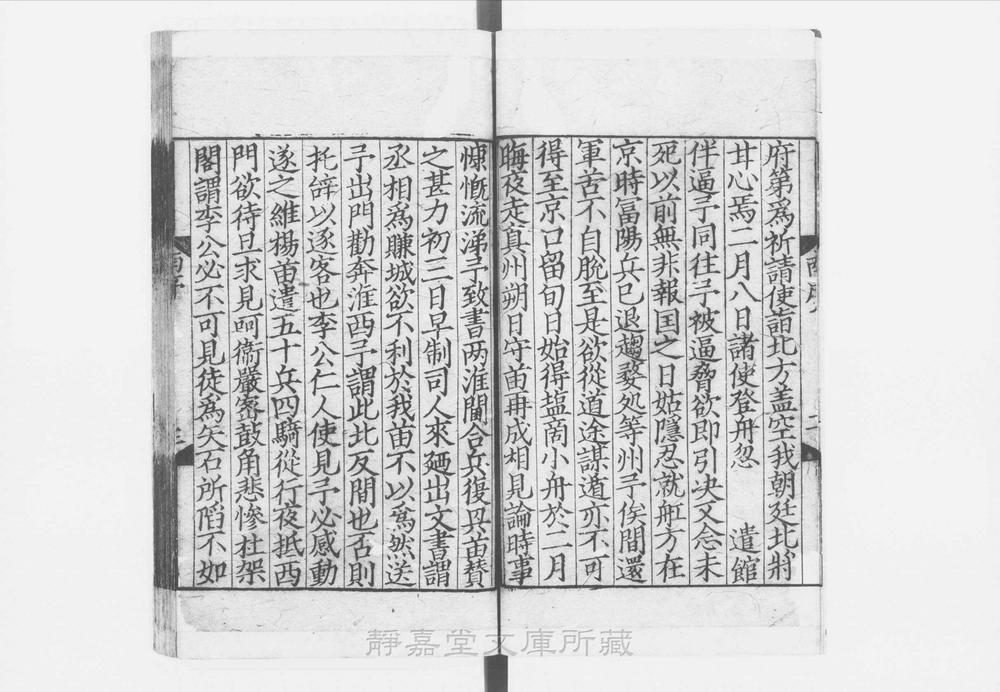 府第為祈請使詣北方盖空我朝廷北將
甘心焉二月八日諸使登舟忽　遣館
伴逼予同往予被逼脅欲即引决又念未
死以前無非報国之日姑隱忍就舡方在
京時富陽兵已退趨婺处等州予俟間還
軍苦不自脫至是欲從道途謀遁亦不可
得至京口留旬日始得塩商小舟於二月
晦夜走真州朔日守苗再成相見論時事
慷慨流涕予致書两淮閫合兵復㒷苗賛
之甚力初三日早制司人來廼出文書謂
丞相為賺城欲不利於我苗不以為然送
予出門勸奔淮西予謂此北反間也否則
托辝以逐客也李公仁人使見予必感動
遂之維楊苗遣五十兵四騎從行夜抵西
門欲待旦求見呵衞嚴宻鼓角悲慘杜架
閣謂李公必不可見徒為矢石所䧟不如
靜嘉堂文庫所藏